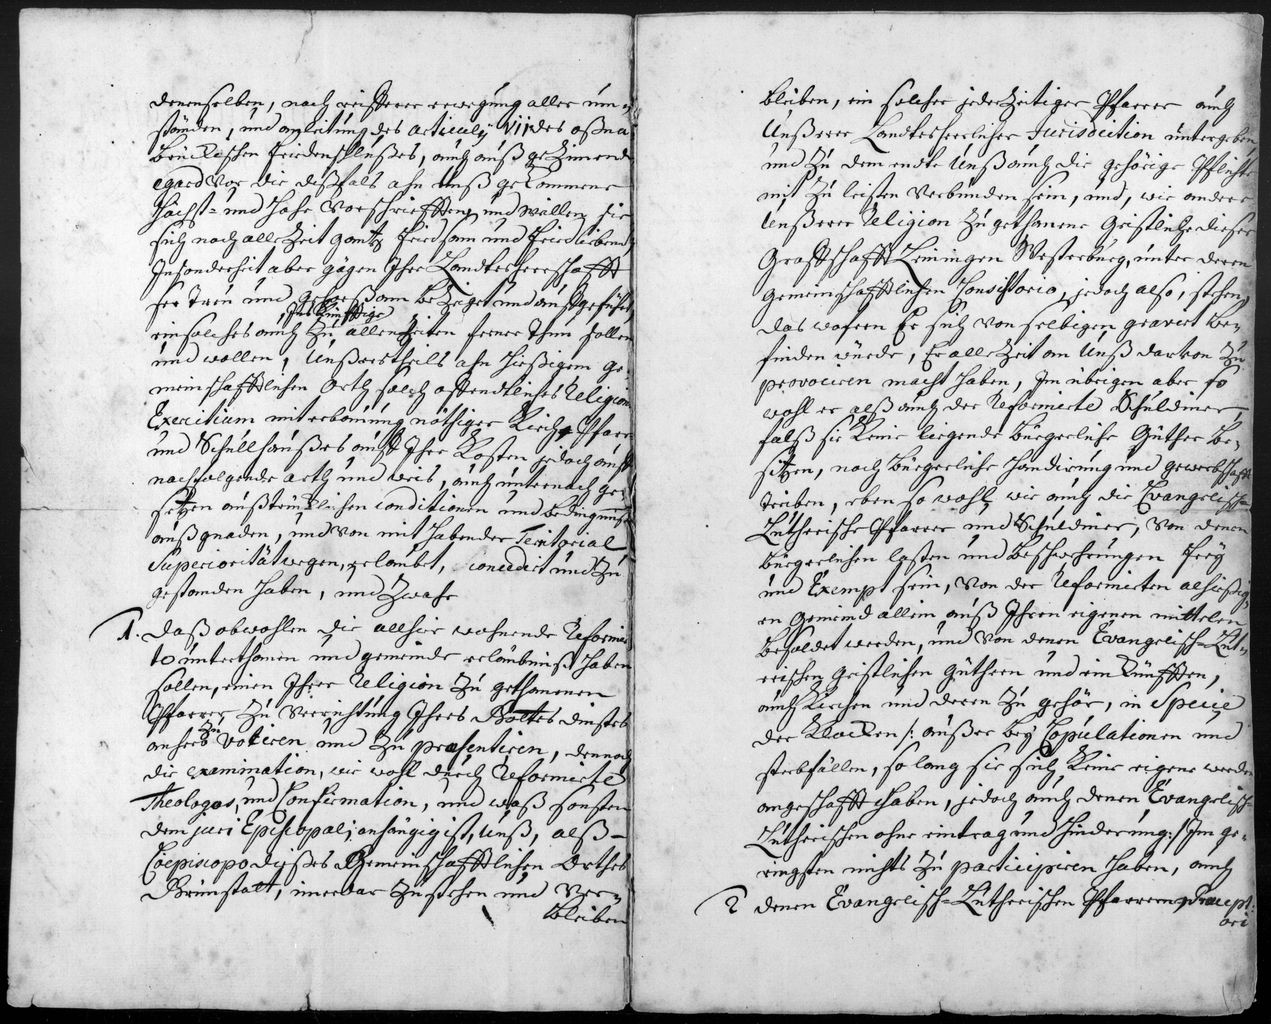 denenselben, nach reifferer erwegung aller um-
ständen, und anleitung des articuly VII des oßna-
brückischen friedenschlußes, auch auß geziemende
egard vor die deßfals ahn unß gekommene
Höchst- und hohe Vorschrifften, und weillen sie
sich noch alle Zeit gantz friedsam und friedliebend
Insonderheit aber gägen Ihre Landtesherrschafft
sehr treu und gehorßam bezeiget und aufgeführt,
ein solches auch ins künfftige zu allen Zeiten ferner thun sollen
und wollen, unßerntheils ahn hießigem ge-
meinschafftlichen Orth solch offendtliches Religions
Exercitium mit erbauung nöthiger Kirch, Pfarr
und Schullhaußes auß Ihre Kosten jedoch auff
nachfolgende arth und weis, auch unternach ge-
setzen außtrücklichen conditionen und bedingnuß
auß gnaden, und von mit habender Territorial
Superiorität wegen, erlaubet, concedirt und zu
gestanden haben, und zwahr
1. daß obwohlen die allhier wohnende Reformir-
te unterthanen und gemeinde erlaubnuß haben
sollen, einen Ihrer Religion zu gethanenen
Pfarrer zu verrichtung Ihres Gottes diensts
anhero zu vociren und zu præsentiren, dennoch
die examination, wie wohl durch Reformirte
Theologos, und Confirmation, und waß sonsten
dem juri Episcopali anhängig ist, unß, alß
Coepiscopo dießes Gemeinschafftlichen Orthes
Grünstatt, immerdar zustehen und ver-
bleiben
bleiben, ein solcher jederzeitiger Pfarrer auch
Unßerer Landtesherrlicher Jurisdiction untergeben
und zu dem ende unß auch die gehörige Pflichte
mit zu leisten verbunden sein, und, wie andere
Unßerer Religion zugethanene Geistliche dieser
Graffschafft Leiningen Westerburg, unter deren
gemeinschafftlichen Consistorio, jedoch also, stehen,
das wofern Er sich von selbigem gravirt be-
finden würde, Er alle Zeit an Unß darvon zu
provociren macht haben, Im übrigen aber so
wohl er alß auch der Reformirte Schuldiener,
falß sie keine liegende bürgerliche Güther be-
sitzen, noch bürgerliche handirung und gewerbschafft
treiben, eben so wohl, wie auch die Evangelisch-
Lutherische Pfarrer und Schuldiener, von denen
bürgerlichen lasten und beschwehrungen frey
und Exempt sein, von der Reformirten alhießig-
en Gemeind allein auß Ihren eigenen mittelen
besoldet werden, und von denen Evangelisch-Luth-
erischen geistlichen Güthern und einkünfften,
auch Kirchen und deren zu gehör, in Specie
der Klocken /: außer bey Copulationen und
sterbfällen, so lang sie sich keine eigene werden
angeschafft haben, jedoch auch denen Evangelisch-
Lutherischen ohne eintrag und hinderung :/ Im ge-
ringsten nichts zu participiren haben, auch
2 denen Evangelisch-Lutherischen Pfarrern, Præcept-
ori